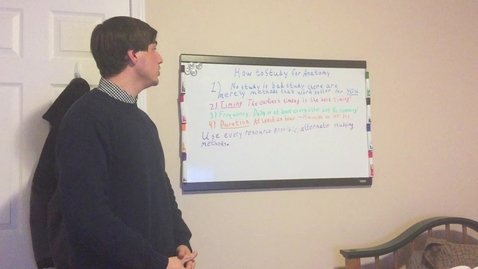 How to Study For Anatomy
1) No study is bad study there are
merely methods that work better for you
2) Timing: The earliest timing is the best timing!
3) Frequency:
4) Duration: At least an hour
Use every resource possible, alternate studying
methods.